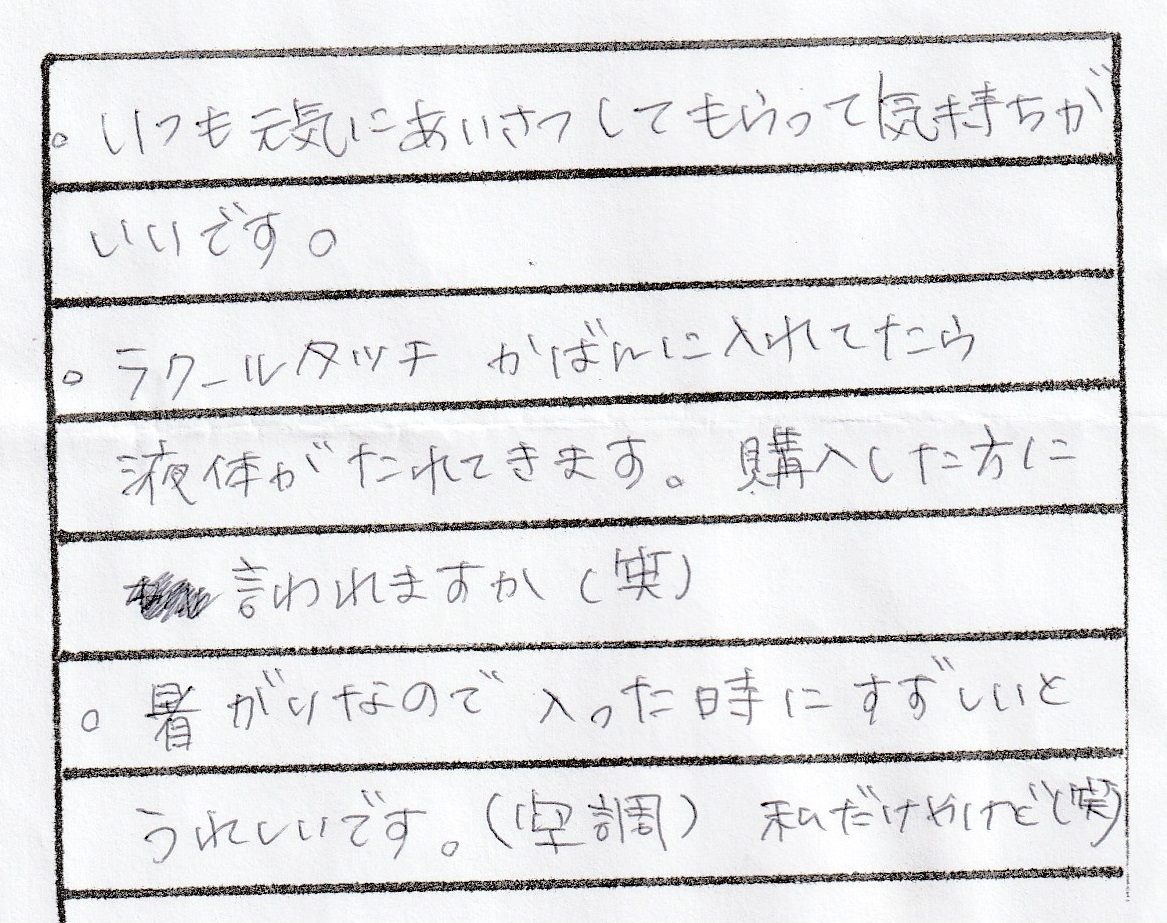 。いつも元気にあいさつしてもらって気持ちが
いいです。
。ラクールタッチ かばんに入れてたら
液体がたれてきます。購入した方に
言われますか(笑)
。暑がりなので入った時にすずしいと
うれしいです。(空調) 私だけやけど(笑)